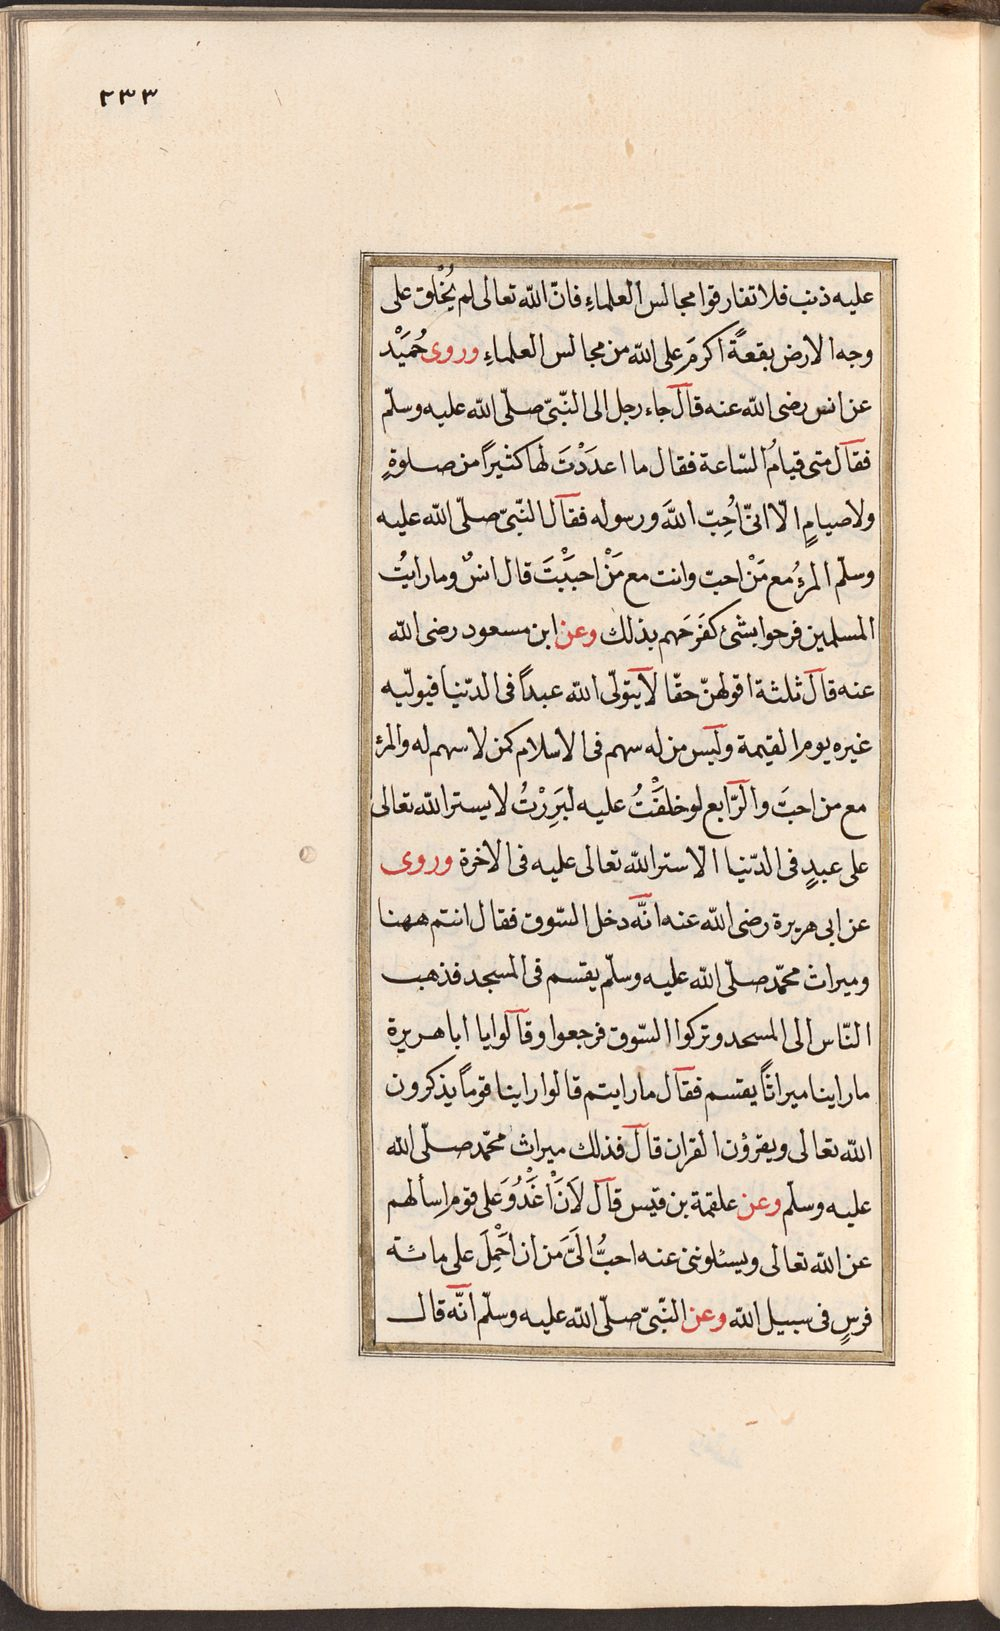 ٢٣٣
عليه ذنب فلا تفارقوا مجالس العلماءِ فانّ الله تعالى لم يُخْلق على
وجه الارض بقعةً اكرمَ على الله من مجالس العلماءِ وروى حُمَيْد
عن انس رضى الله عنه قال جاء رجل الى النّبىّ صلّى الله عليه وسلّم
فقال متى قيامُ السّاعة فقال ما اعدَدْتَ لها كثيراً من صلوةٍ
ولا صيامٍ الّا انّى اُحِبّ اللهَ ورسوله فقال النّبىّ صلّى الله عليه
وسلّم المرءُ مع مَنْ احبّ وانت مع مَنْ احبَبْتَ قال انسٌ وما رايتُ
المسلمين فرحوا بشئ كفَرَحَهم بذلك وعن ابن مسعود رضى الله
عنه قال ثلثة اقولهنّ حقّا لا يتولّى الله عبداً فى الدّنيا فيولّيه
غيره يوم القيمة وليس من له سهم فى الاسلام كمن لا سهم له والمرء
مع من احبّ والرّابع لو خلفْتُ عليه لبَرِرْتُ لا يستر الله تعالى
على عبدٍ فى الدّنيا الا ستر الله تعالى عليه فى الاخرة وروى
عن ابى هريرة رضى الله عنه انّه دخل السّوق فقال انتم ههنا
وميراث محمّد صلّى الله عليه وسلّم يقسم فى المسجد فذهب
النّاس الى المسجد وتركوا السّوق فرجعوا وقالوا يا ابا هريرة
ما راينا ميراثاً يقسم فقال ما رايتم قالوا راينا قوماً يذكرون
الله تعالى ويقرؤن القران قال فذلك ميراث محمّد صلّى الله
عليه وسلّم وعن علقمة بن قيس قال لاَنْ اَغْدُوَ على قوم اسألهم
عن الله تعالى ويسئلوننى عنه احبُّ الىَّ من ان اَحْمِلَ على مائة
فرسٍ فى سبيل الله وعن النّبىّ صلّى الله عليه وسلّم انّه قال